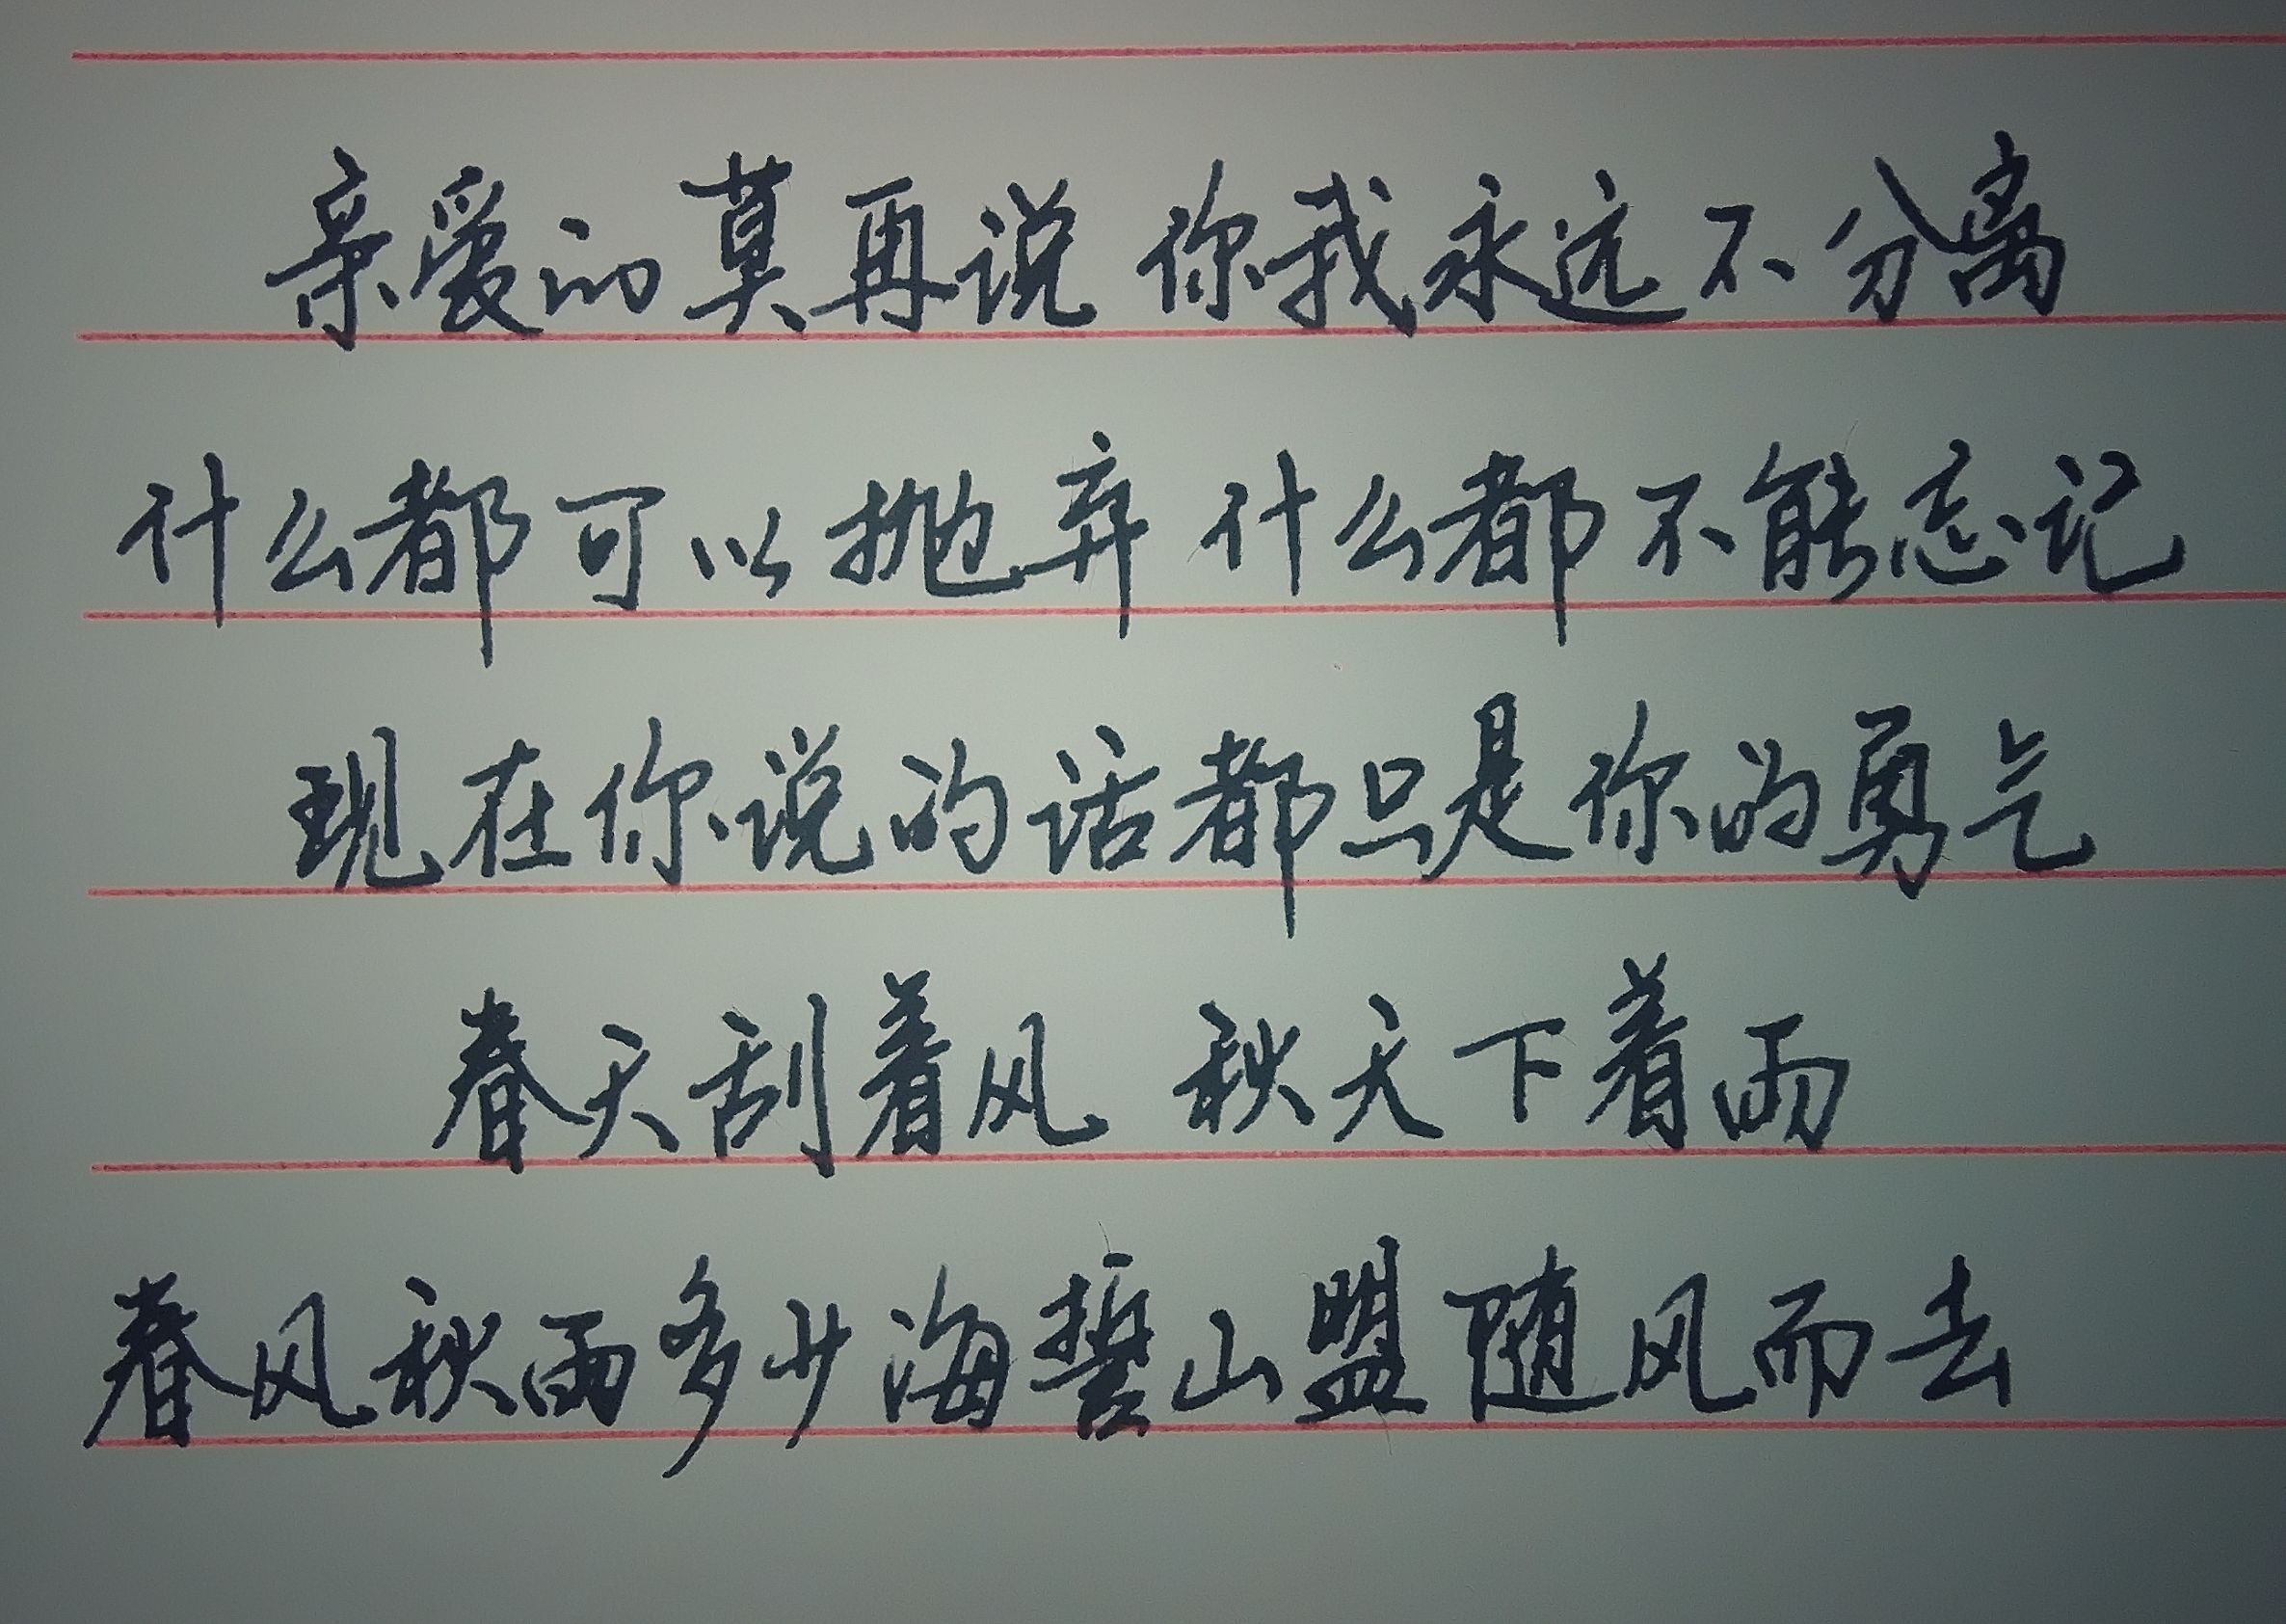 亲爱的莫再说 你我永远不分离
什么都可以抛弃 什么都不能忘记
现在你说的话都只是你的勇气
春天刮着风 秋天下着雨
春风秋雨多少海誓山盟随风而去